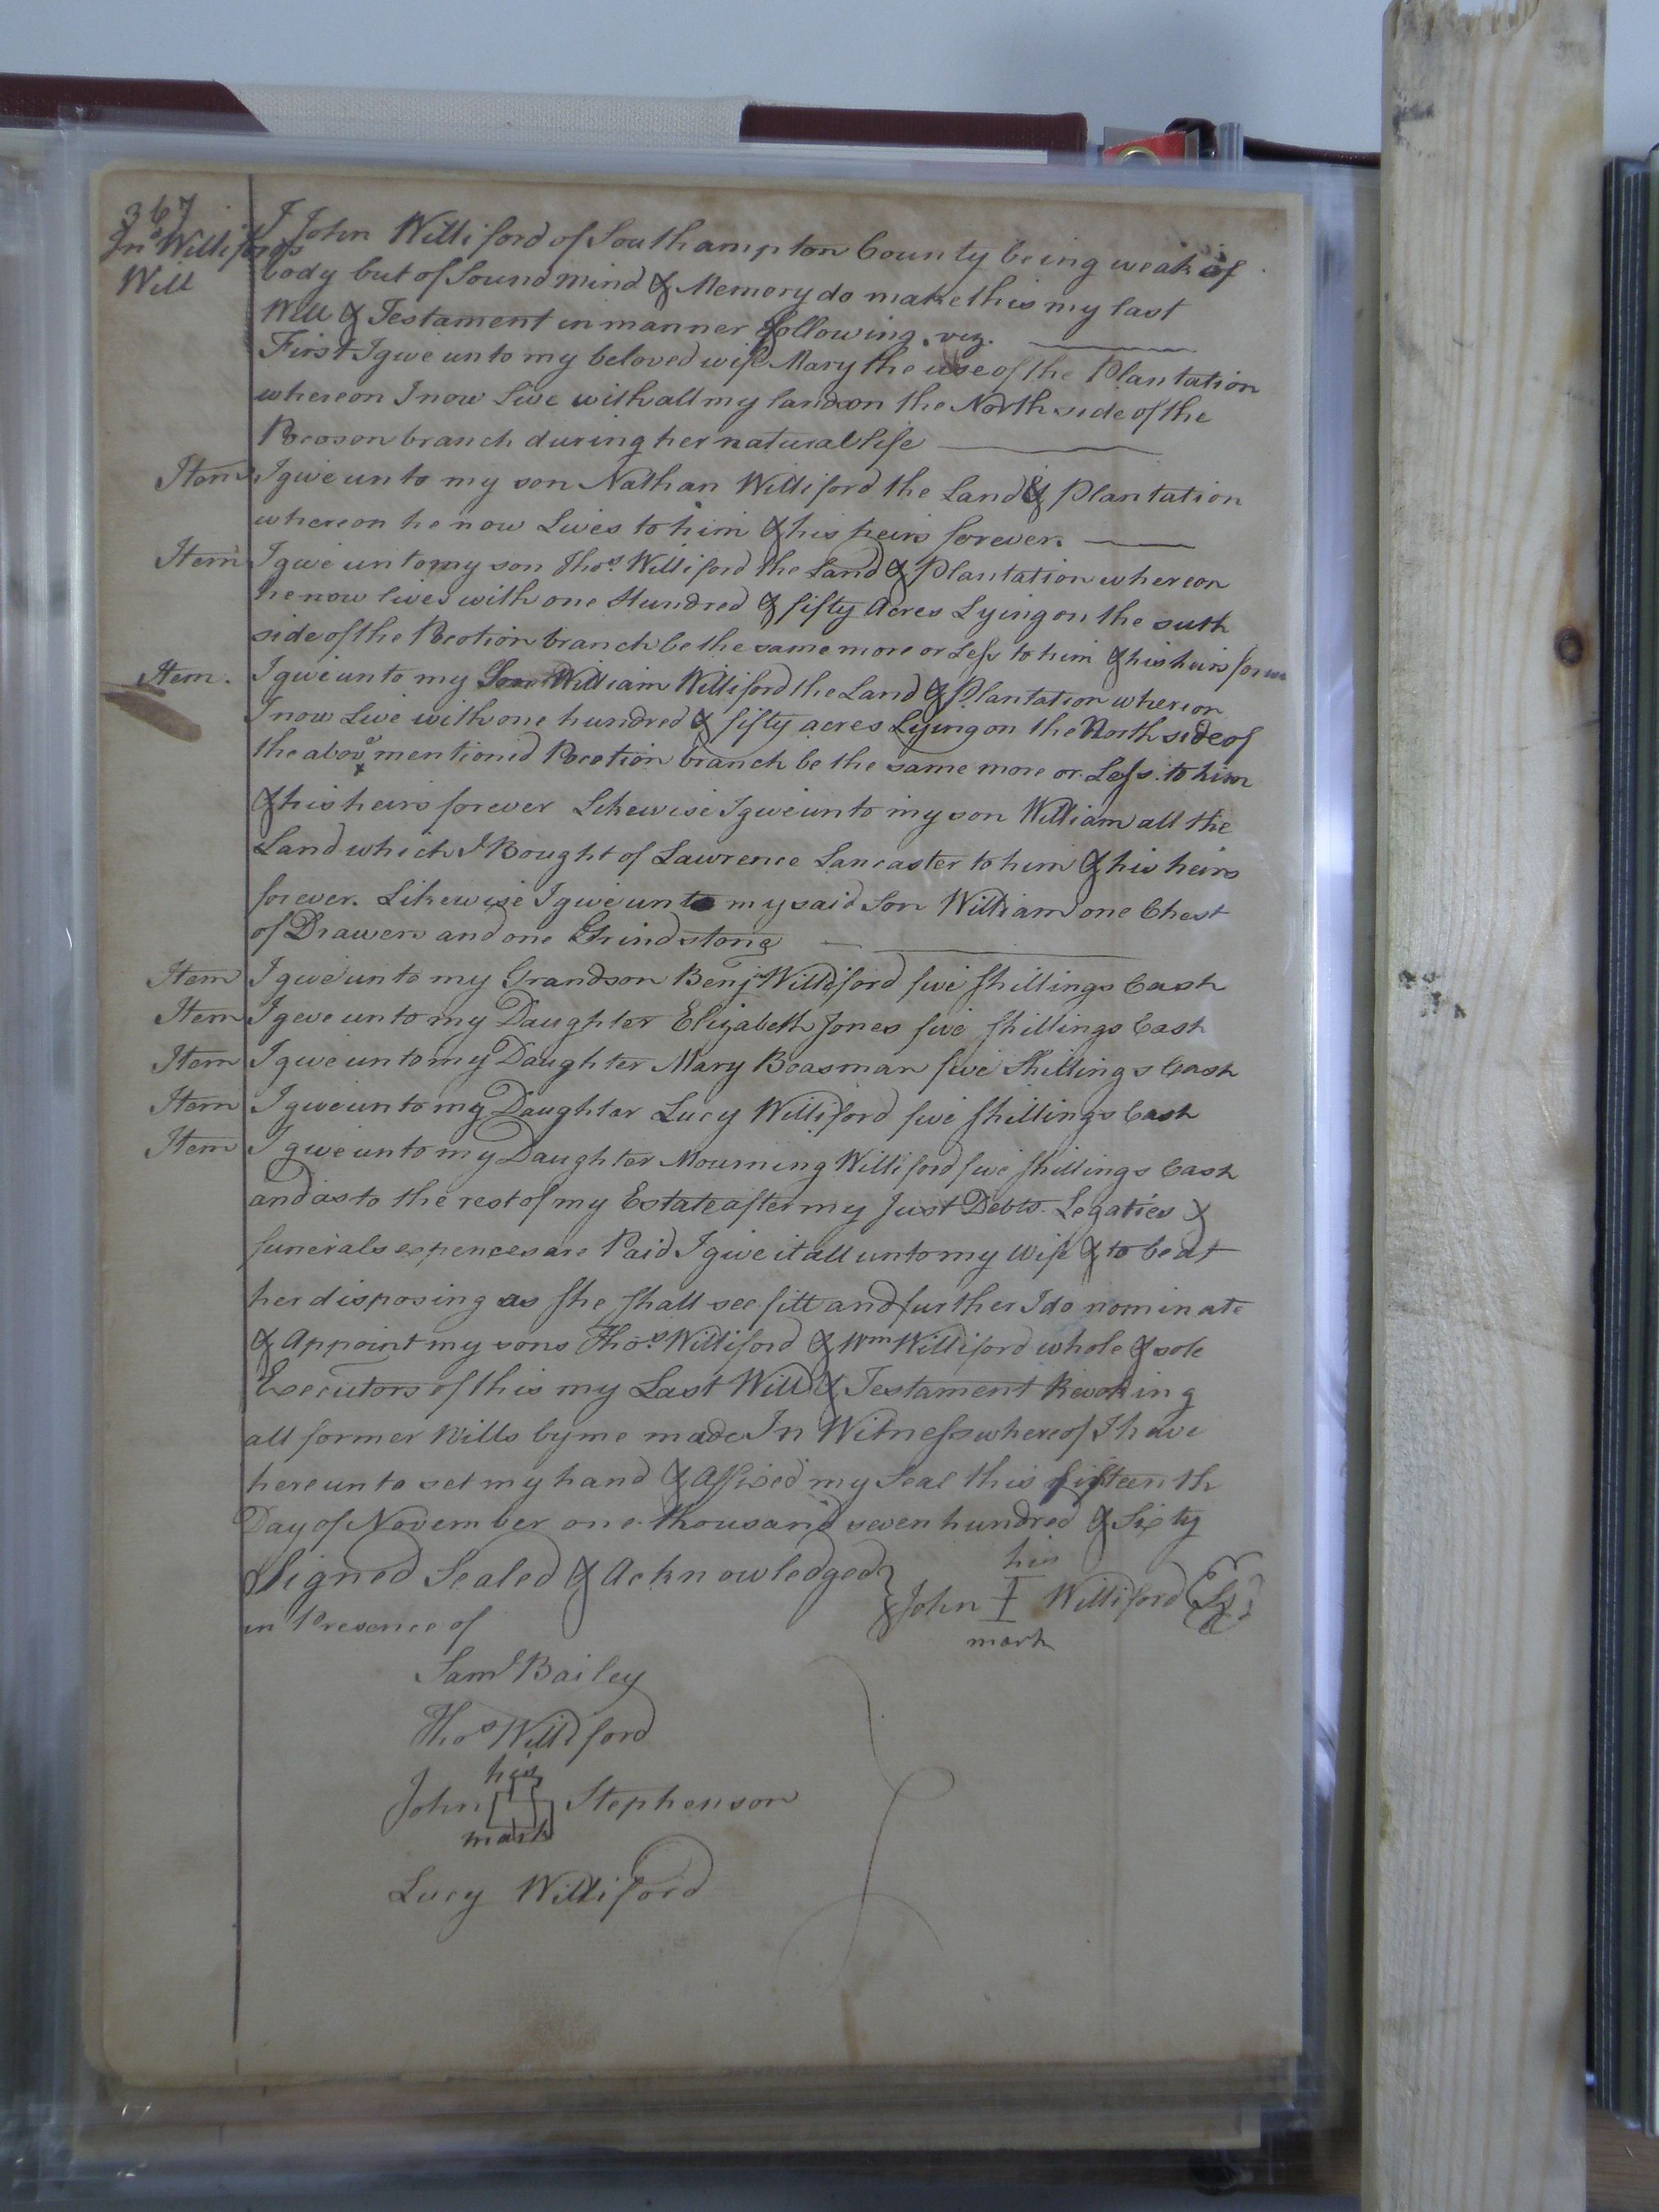 367
Jno Williford's
Will
I John Williford of Southampton County being weak of
body but of Sound mind & Memory do make this my last
Will & Testament in manner following. viz.
First I give unto my beloved wife Mary the use of the Plantation
whereon I now Live with all my lands on the North side of the
Pocoson branch during her natural life
Item I give unto my son Nathan Williford the Land & Plantation
whereon he now Lives to him & his heirs forever.
Item I give unto my son Thos. Williford the Land & Plantation whereon
he now lives with one Hundred & fifty Acres Lying on the suth
side of the Pocotion branch be the same more or Less to him & his heirs
Item. I give unto my Son William Williford the Land & Plantation wheron
I now Live with one hundred & fifty acres Lying on the North side of
the above mentioned Pocotion branch be the same more or Less to him
& his heirs forever Likewise I give unto my son William all the
Land which I Bought of Lawrence Lancaster to him & his heirs
forever. Likewise I give unto my said Son William one Chest
of Drawers and one Grindstone
Item I give unto my Grandson Benjn Williford five shillings Cash
Item I geve unto my Daughter Elizabeth Jones five shillings Cash
Item I give unto my Daughter Mary Boasman five Shillings Cash
Item I give unto my Daughter Lucy Williford five shillings Cash
Item I give unto my Daughter Mourning Williford five shillings Cash
and as to the rest of my Estate after my Just Debts. Legaties &
funerals expences are Paid I give it all unto my Wife & to be at
her disposing as she shall see fitt and further I do nominate
& Appoint my sons Thos. Williford & Wm Williford whole & sole
Executors of this my Last Will & Testament Revoking
all former Wills by me made In Witness whereof I have
hereunto set my hand & Affixed my Seal this fifteenth
Day of November one thousand seven hundred & Sixty
Signed Sealed & Acknowledged
in Presence of
his
John I Williford Ls
mark
Saml Bailey
Thos Williford
his
John Stephenson
mark
Lucy Williford